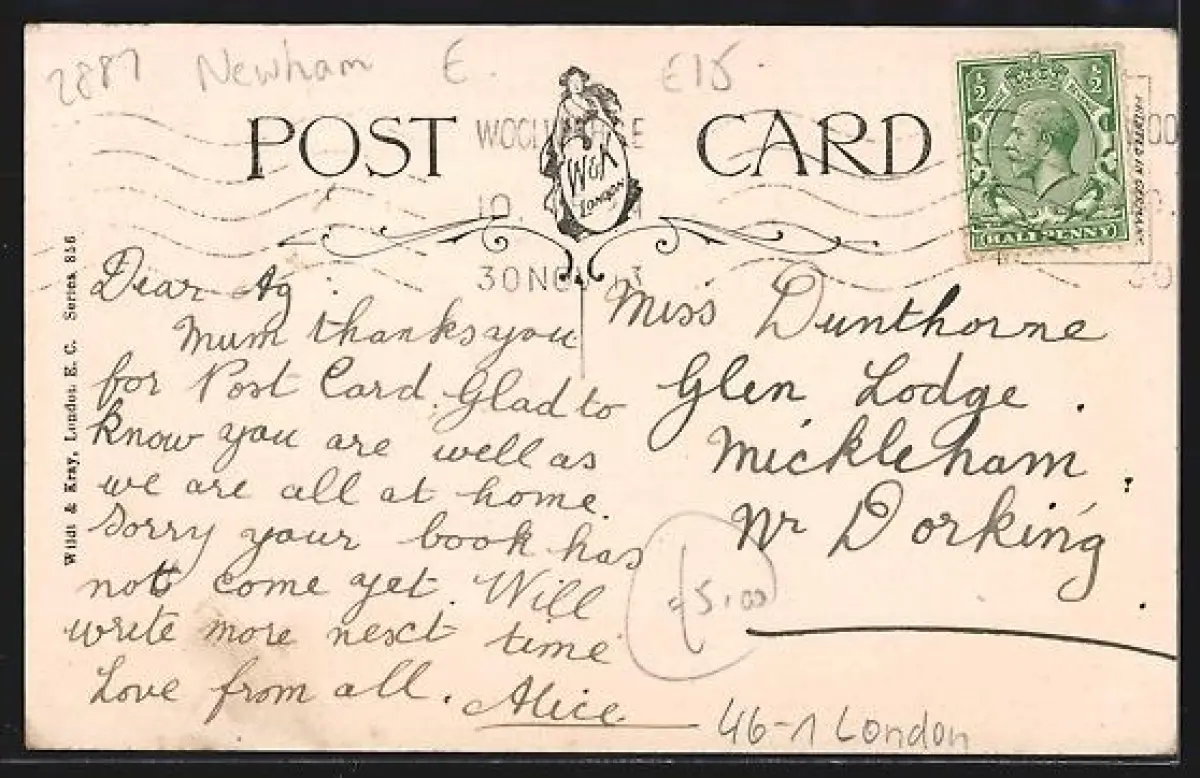 2887 Newham E. E15.
POST CARD
W&K
London
30 NOV 13
HALFPENNY
Wildt & Kray, London. E. C. Series 836
Dear Ag
Mum thanks you
for Post Card. Glad to
know you are well as
we are all at home.
Sorry your book has
not come yet. Will
write more next time
Love from all. Alice
Miss Dunthorne
Glen Lodge.
Mickleham.
Nr Dorking.
5,00
46-1 London